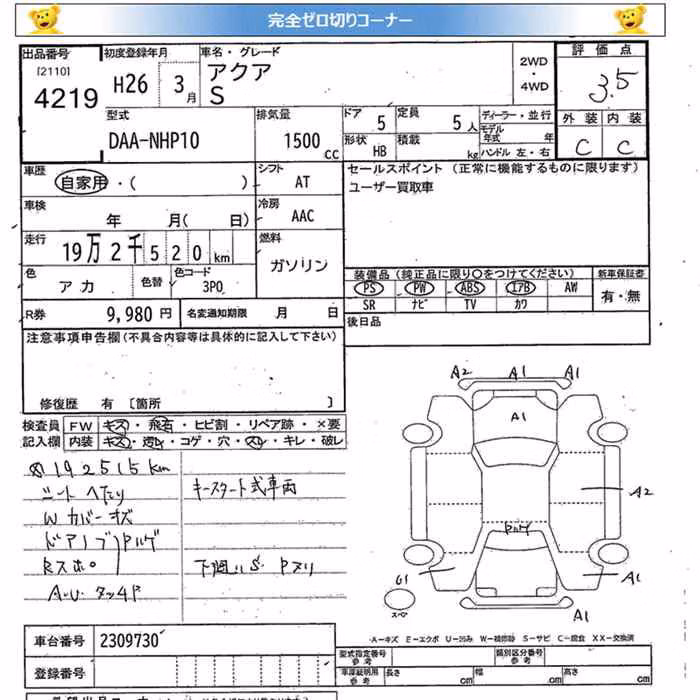 完全ゼロ切りコーナー
出品番号 初度登録年月 車名・グレード 評価点
[2110] 4219 H26 3月 アクア S 2WD・4WD 3.5
型式 排気量 ドア 5 定員 5人 ディーラー・並行 外装 内装
DAA-NHP10 1500cc 形状 HB 積載 kg モデル年式 年 ハンドル 左・右 C C
車歴 自家用・( ) シフト AT セールスポイント (正常に機能するものに限ります)
ユーザー買取車
車検 年 月( 日) 冷房 AAC
走行 19万2千520km 燃料 ガソリン
色 アカ 色替 色コード 3P0 装備品(純正品に限り○をつけてください) 新車保証書
PS PW ABS エアB AW 有・無
SR ナビ TV カワ
R券 9,980円 名変通知期限 月 日 後日品
注意事項申告欄(不具合内容等は具体的に記入して下さい)
修復歴 有 〔箇所 〕
検査員 FW キズ・飛石・ヒビ割・リペア跡・×要
記入欄 内装 キズ・汚レ・コゲ・穴・スレ・キレ・破レ
192515km
シートヘタリ キースタート式車両
Wカバーキズ
ドアノブ
Rスポ 下廻りS
A2 A1 A1
A1
A2
A1
G1
スペア
A1
A-キズ E-エクボ U-凹み W-補修跡 S-サビ C-腐食 XX-交換済
車台番号 2309730 型式指定番号 参考 類別区分番号 参考
登録番号 車庫証明用 参考 長さ cm 幅 cm 高さ cm